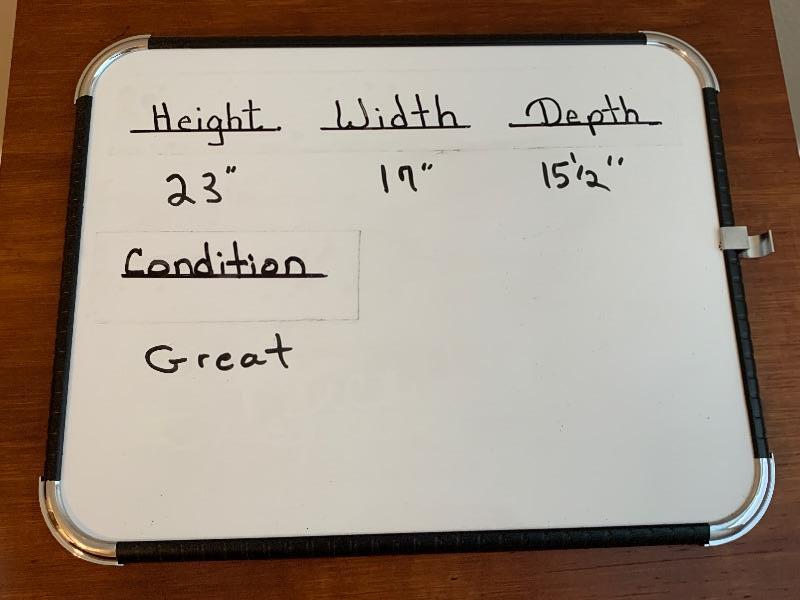 Height Width Depth
23" 17" 15 1/2"
Condition
Great